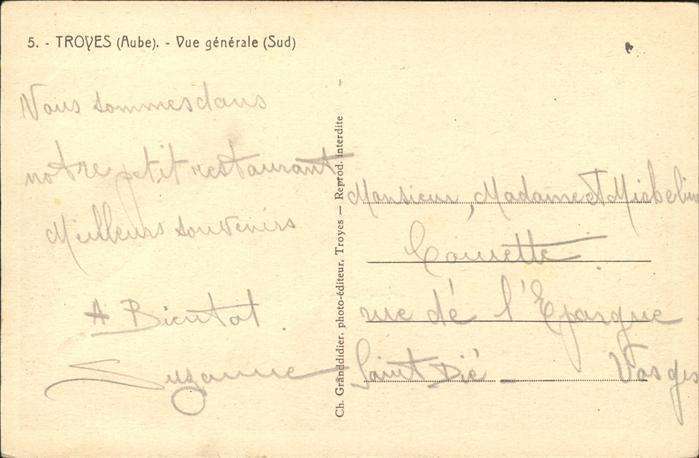 5. - TROYES (Aube). - Vue générale (Sud)
Nous sommes dans
notre petit restaurant
Meilleurs souvenirs
A Bientot.
Suzanne
Ch. Granddidier, photo-éditeur, Troyes — Reprod. interdite
Monsieur, Madame et
rue dé l'Epargue
Saint Dié Vosges